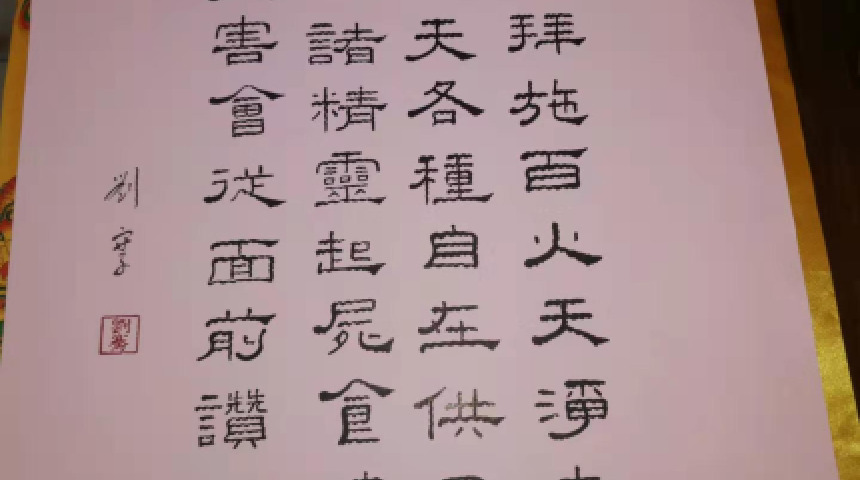 拜施百火天淨
天各種自在供
諸精靈起屍食
害會從面前讚
劉